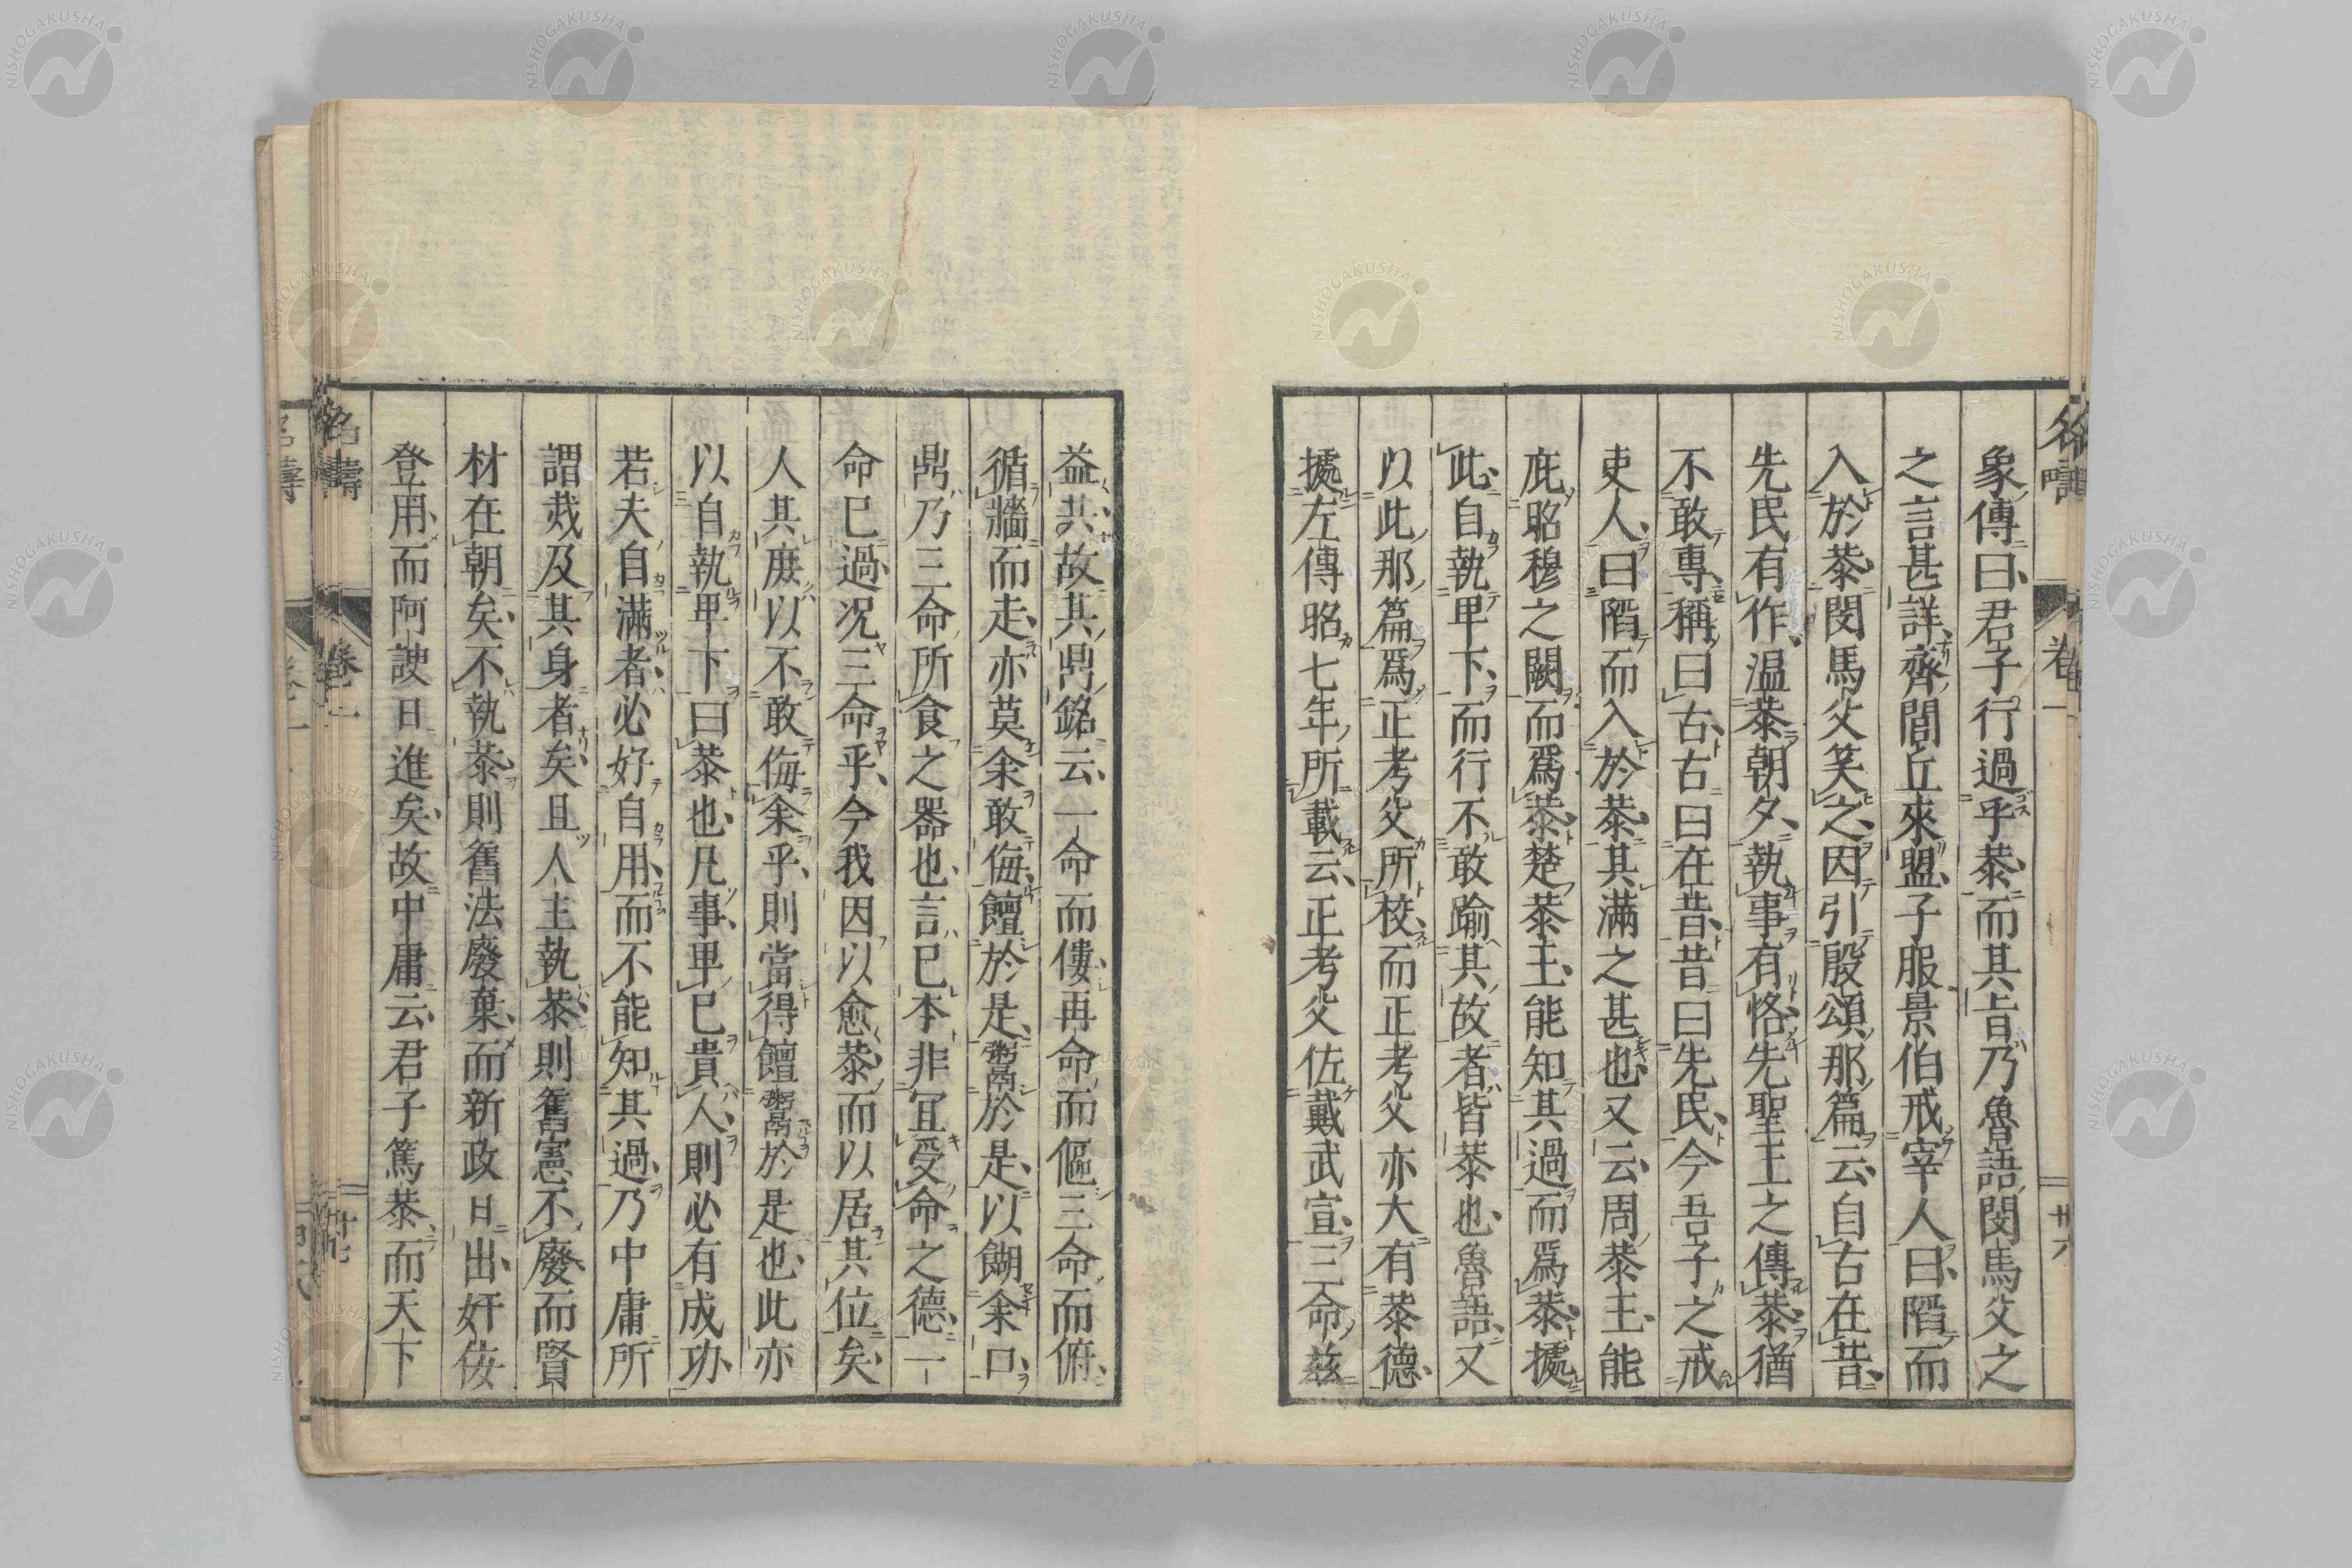 象傳曰君子行過乎恭而其旨乃魯語閔馬父之
之言甚詳齊閭丘來盟子服景伯戒宰人曰陷而
入於恭閔馬父笑之因引殷頌那篇云自古在昔
先民有作温恭朝夕執事有恪先聖王之傳恭猶
不敢專稱曰古古曰在昔昔曰先民今吾子之戒
吏人曰陷而入於恭其滿之甚也又云周恭王能
庇昭穆之闕而爲恭楚恭王能知其過而爲恭據
此自執卑下而行不敢踰其故者皆恭也魯語又
以此那篇爲正考父所校而正考父亦大有恭德
據左傳昭七年所載云正考父佐戴武宣三命茲
益共故其鼎銘云一命而僂再命而傴三命而俯
循牆而走亦莫余敢侮饘於是鬻於是以餬余口
鼎乃三命所食之器也言已本非宜受命之德一
命已過况三命乎今我因以愈恭而以居其位矣
人其庶以不敢侮余乎則當得饘鬻於是也此亦
以自執卑下曰恭也凡事卑已貴人則必有成功
若夫自滿者必好自用而不能知其過乃中庸所
謂烖及其身者矣且人主執恭則舊憲不廢而賢
材在朝矣不執恭則舊法廢棄而新政日出奸佞
登用而阿諛日進矣故中庸云君子篤恭而天下
名疇
卷一
廿六
名疇
卷一
廿七
NISHOGAKUSHA